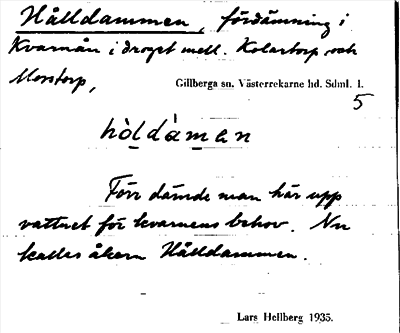 Hålldammen, fördämning i
Kvarnån i droget mell. Kolartorp och
Morstorp,
Gillberga sn. Västerrekarne hd. Sdml. l.
5
hòldàmen
Förr dämde man här upp
vattnet för kvarnens behov. Nu
kallas åkern Hålldammen.
Lars Hellberg 1935.